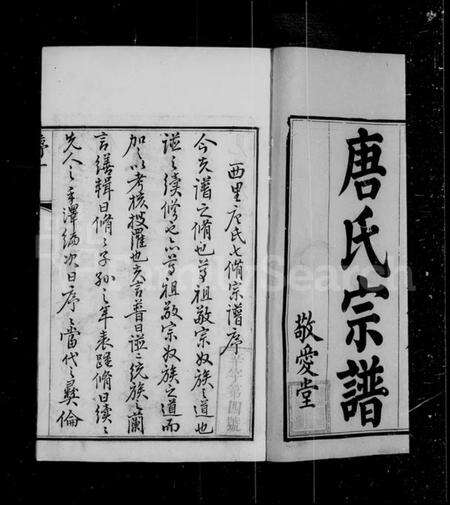 唐氏宗譜
敬愛堂
西里唐氏七脩宗譜序
今夫譜之脩也尊祖敬宗收族之道也
譜之續修也亦尊祖敬宗收族之道而
加之以考核搜羅也夫言普曰譜統族蘭
言繕輯曰脩子孫年表躍脩曰續
先人之手澤編次曰序當代彝倫
第四號
FamilySearch